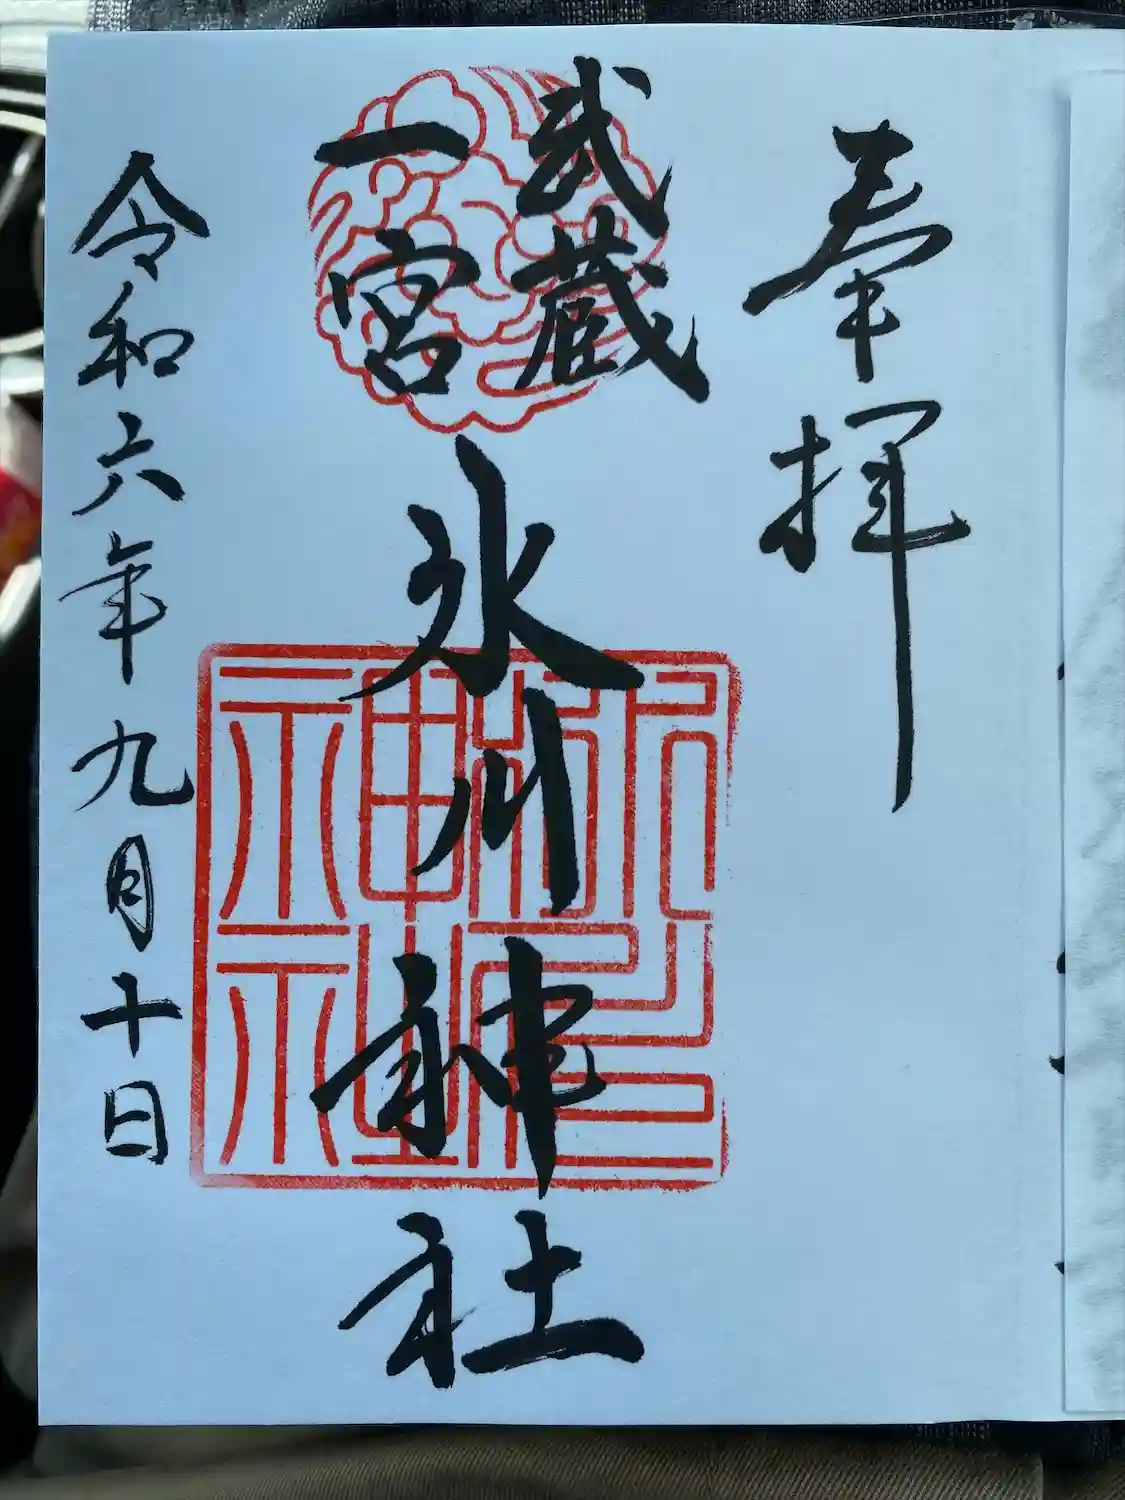 奉拝
武蔵
一宮
氷川神社
令和六年九月十日
氷川神社